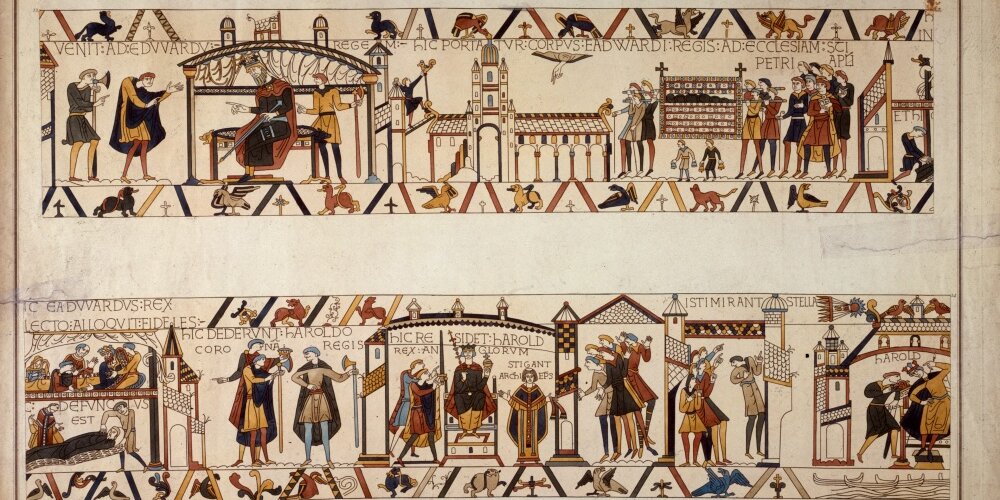 VENIT:AD:EDVVARDV:
REGEM:-
HIC PORTATVR:CORPVS:EADWARDI:REGIS:AD:ECCLESIAM:SCI
PETRI APLI
IN
ET HI
HIC EADVVARDVS:REX
LECTO:ALLOQVIT:FIDELES:-
DEFVNCTVS
EST
HIC DEDERVNT:HAROLDO
CORONA REGIS
HIC RE SIDET:HAROLD
REX:ANGLORVM
STIGANT
ARCHIEPS
ISTI MIRANT STELLA
HAROLD